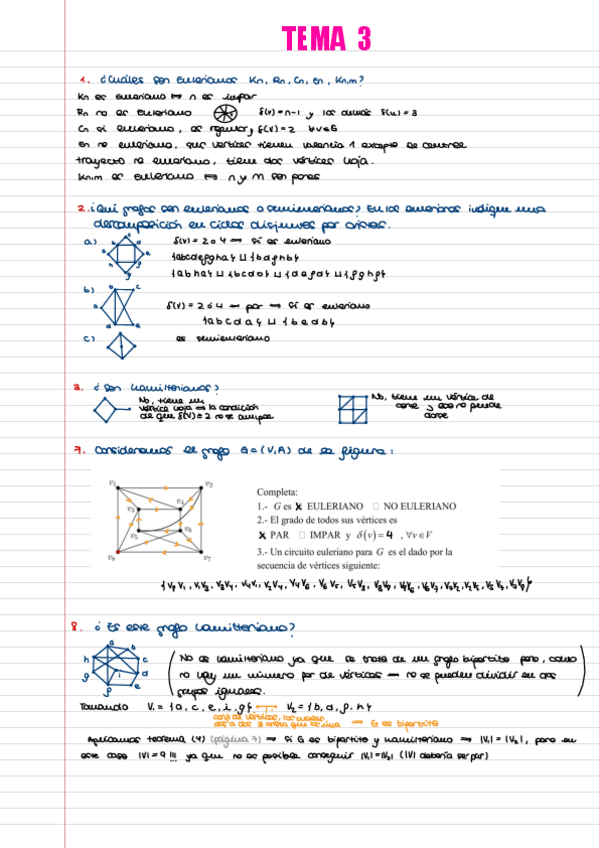 TEMA 3
1. ¿Cuáles son eulerianos Kn, Rn, Cn, En, Kn,m?
Kn es euleriano ⇔ n es impar
Rn no es euleriano δ(v)=n-1 y los demás δ(u)=3
Cn sí euleriano, es regular, δ(v)=2 ∀v∈G
En no euleriano, sus vértices tienen valencia 1 excepto el central
trayecto no euleriano, tiene dos vértices hoja.
Kn,m es euleriano ⇔ n y m son pares
2. ¿Qué grafos son eulerianos o semieulerianos? En los eulerianos indique una
descomposición en ciclos disjuntos por aristas.
a) δ(v) = 2 o 4 → sí es euleriano
b) δ(v) = 2 o 4 → par → sí es euleriano
{abcda} ⊔ {bedb}
c) es semieuleriano
3. ¿Son Hamiltonianos?
No, tiene un
vértice hoja ⇒ la condición
de que δ(v)=2 no se cumple
No, tiene un vértice de
corte y eso no puede
darse
7. Consideramos el grafo G=(V,A) de la figura:
v1 v2 v3 v4 v5 v6 v7 v8
Completa:
1.- G es X EULERIANO □ NO EULERIANO
2.- El grado de todos sus vértices es
X PAR □ IMPAR y δ(v)= 4 , ∀v∈V
3.- Un circuito euleriano para G es el dado por la
secuencia de vértices siguiente:
8. ¿Es este grafo Hamiltoniano?
No es hamiltoniano ya que se trata de un grafo bipartito pero, como
no hay un número par de vértices → no se pueden dividir en dos
grupos iguales.
Tomando V1 = {a, c, e, i, g} V2 = {b, d, f, h}
→ G es bipartito
Aplicamos teorema (4) (página 7) → Si G es bipartito y hamiltoniano ⇒ |V1| = |V2|, pero en
este caso |V| = 9 !!! ya que no es posible conseguir |V1|=|V2| (|V| debería ser par)